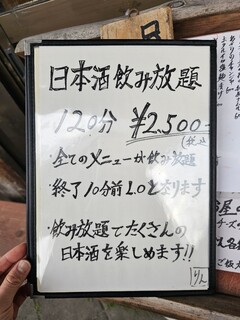 日本酒飲み放題
120分 ¥2,500-
(税込)
・全てのメニューが飲み放題
・終了10分前L.Oとなります
・飲み放題でたくさんの
日本酒を楽しめます!!